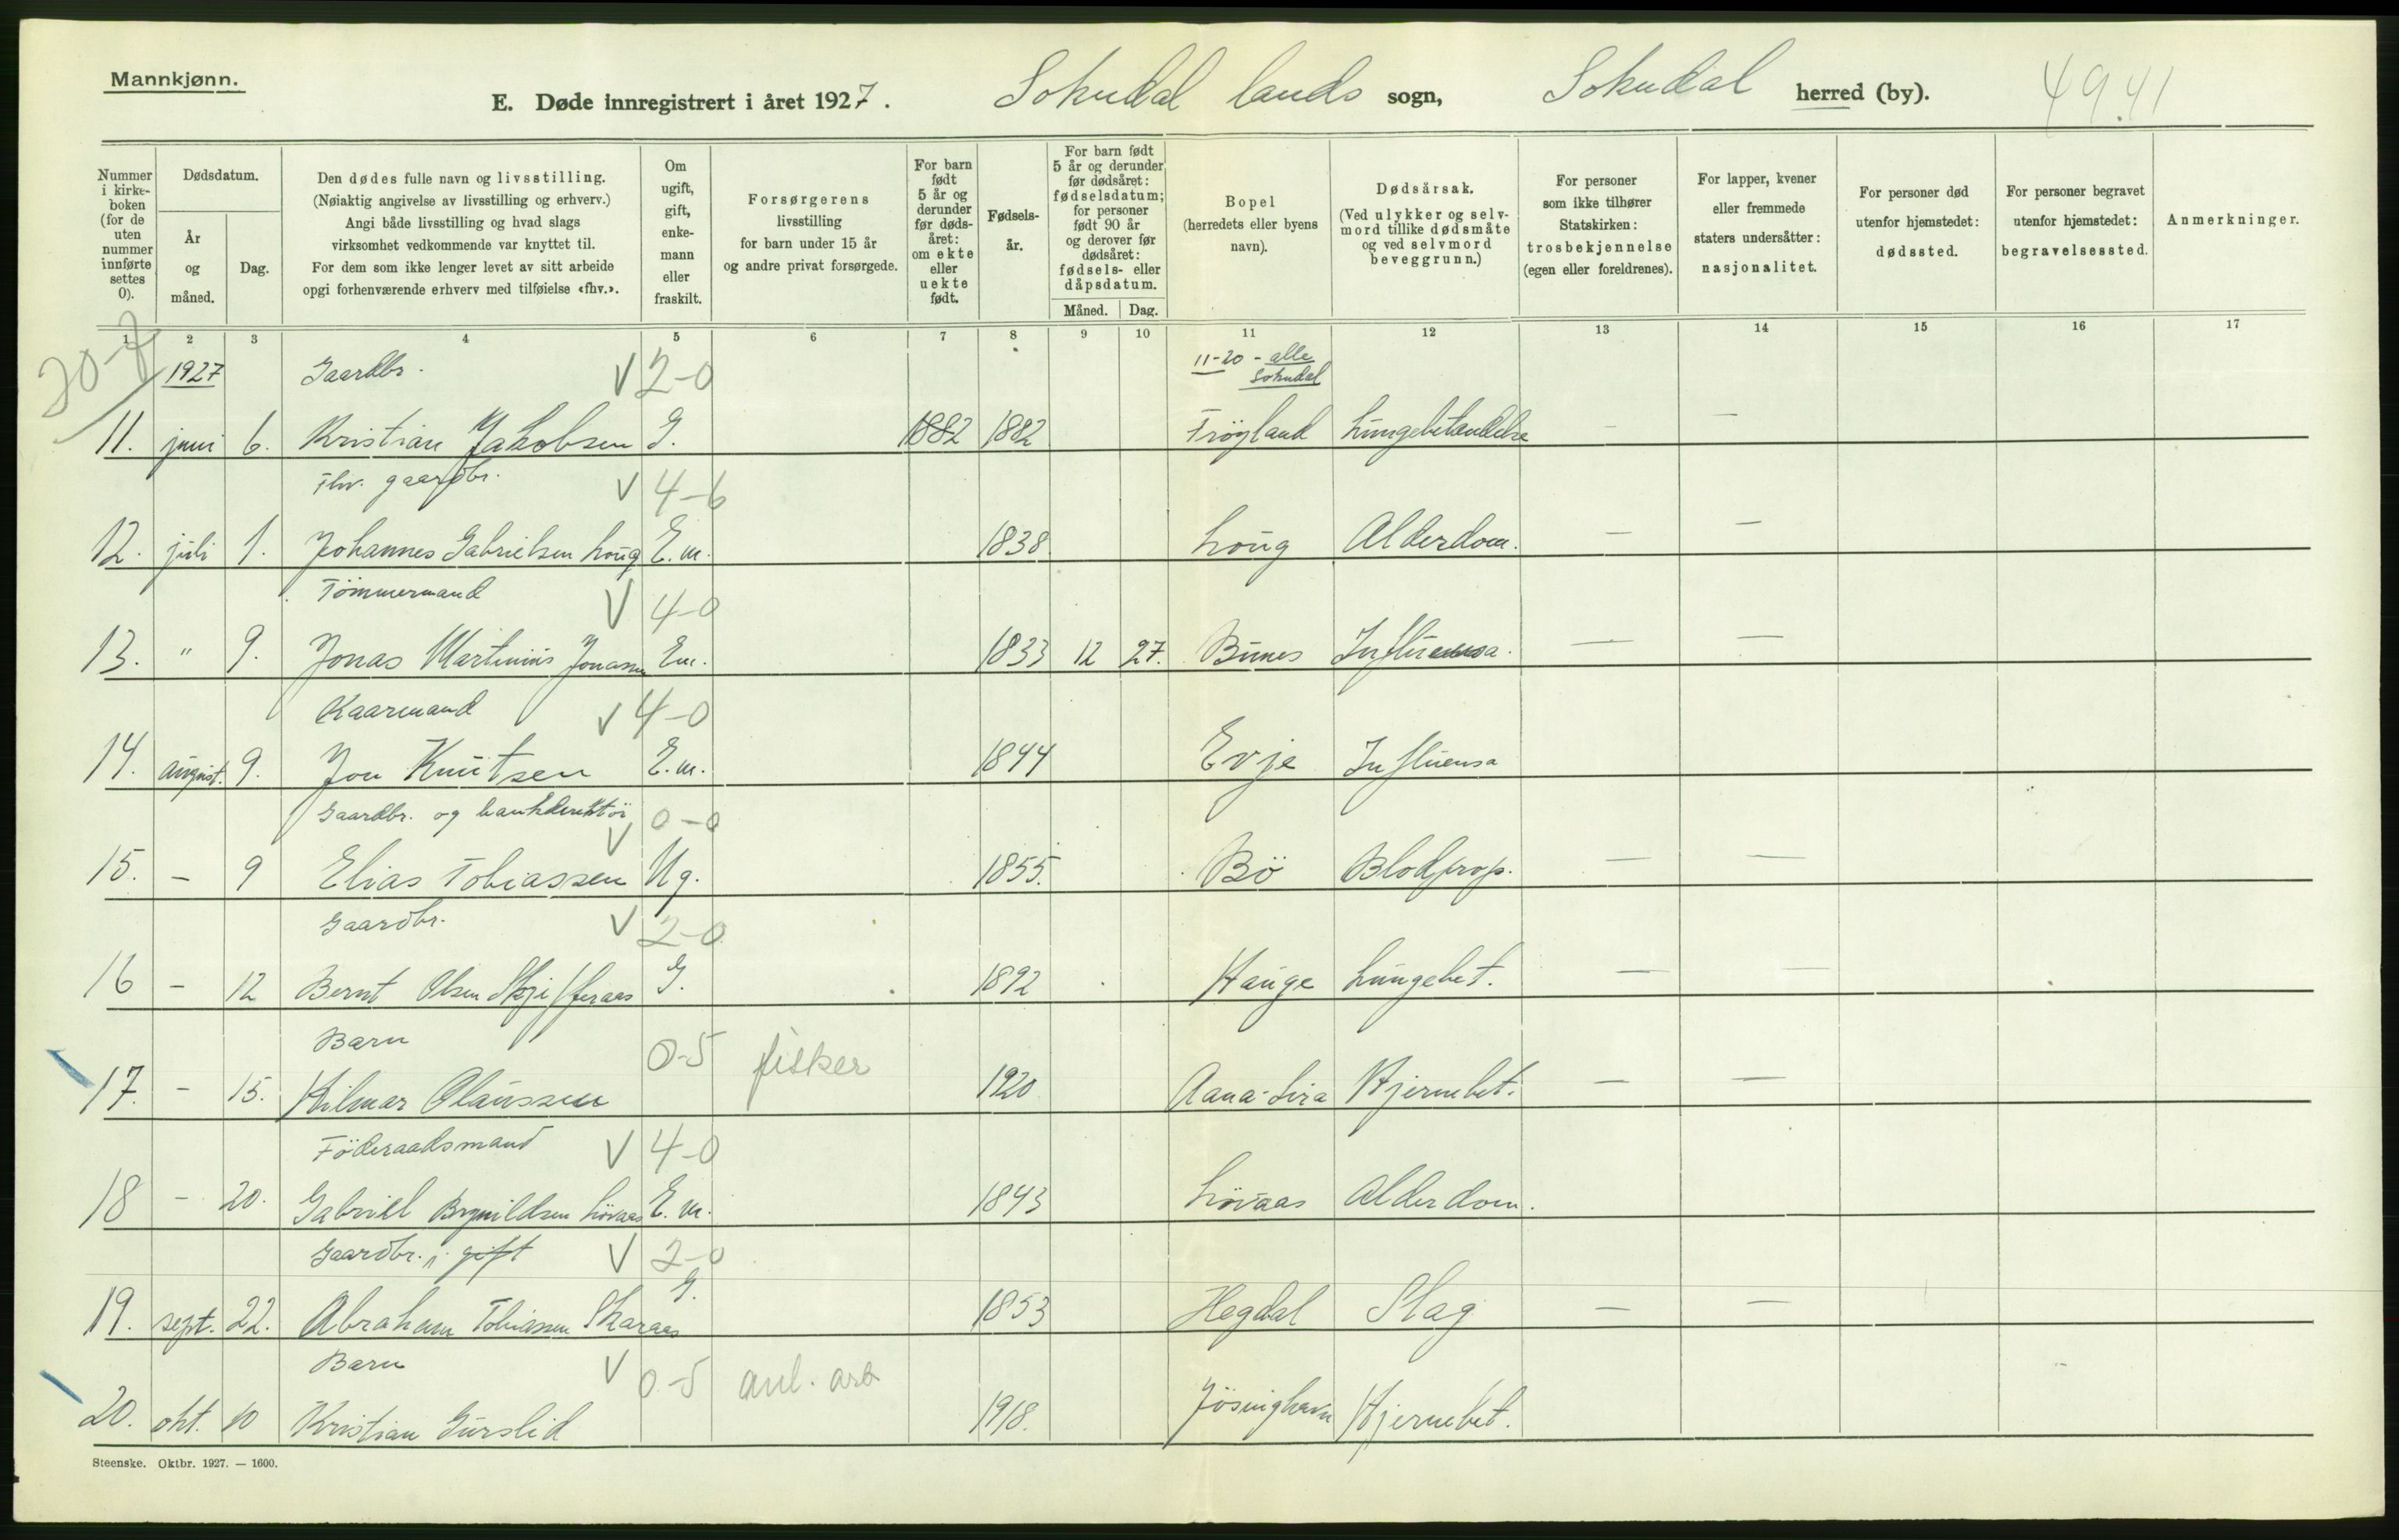 Mannkjønn.
E. Døde innregistrert i året 1927. Sokndal lands sogn, Sokndal herred (by). 49.41
Nummer i kirke-boken (for de uten nummer innførte settes 0).
Dødsdatum.
År og måned.
Dag.
Den dødes fulle navn og livsstilling.
(Nøiaktig angivelse av livsstilling og erhverv.)
Angi både livsstilling og hvad slags
virksomhet vedkommende var knyttet til.
For dem som ikke lenger levet av sitt arbeide
opgi forhenværende erhverv med tilføielse «fhv.».
Om ugift, gift, enke-mann eller fraskilt.
Forsørgerens
livsstilling
for barn under 15 år
og andre privat forsørgede.
For barn født 5 år og derunder før døds-året: om ekte eller uekte født.
Fødsels-år.
For barn født 5 år og derunder før dødsåret: fødselsdatum; for personer født 90 år og derover før dødsåret: fødsels- eller dåpsdatum.
Måned. Dag.
Bopel
(herredets eller byens navn).
Dødsårsak.
(Ved ulykker og selv-mord tillike dødsmåte og ved selvmord beveggrunn.)
For personer som ikke tilhører Statskirken: trosbekjennelse (egen eller foreldrenes).
For lapper, kvener eller fremmede staters undersåtter: nasjonalitet.
For personer død utenfor hjemstedet: dødssted.
For personer begravet utenfor hjemstedet: begravelsessted.
Anmerkninger.
1 2 3 4 5 6 7 8 9 10 11 12 13 14 15 16 17
20-7
1927 Gaardbr. V 2-0 11-20 - alle Sokndal
11. juni 6. Kristian Jakobsen G. 1882 1882 Frøyland Lungebetændelse — —
Fhv. gaardbr. V 4-6
12. juli 1. Johannes Gabrielsen Log E.m. 1838 Log Alderdom. — —
Tömmermand V 4-0
13. " 9. Jonas Martinius Jonassen Em. 1833 12 27. Bunes Influensa. — —
Kaarmand V 4-0
14. august. 9. Jon Knutsen E.m. 1844 Evje Influensa
Gaardbr. og bankdirektör V 0-0
15. — 9 Elias Tobiassen Ug. 1855. Bö Blodprop. — —
Gaardbr. V 2-0
16 — 12 Bernt Olsen G. 1892 Hauge Lungebet. — —
Barn 0-5 fisker
17. - 15. Hilmar Olaussen 1920 Aana-Sira Hjernebet. — —
Föderaadsmand V 4-0
18 - 20. Gabriel Brynildsen Lövaas E.m. 1843 Lövaas Alderdom.
Gaardbr. i gift V 2-0
19. sept. 22. Abraham Tobiassen Skaraas G. 1853 Hegdal Slag — —
Barn V 0-5 anl. arb
20. okt. 10 Kristian Surslid 1918. Jösinghavn Hjernebet.
Steenske. Oktbr. 1927. — 1600.